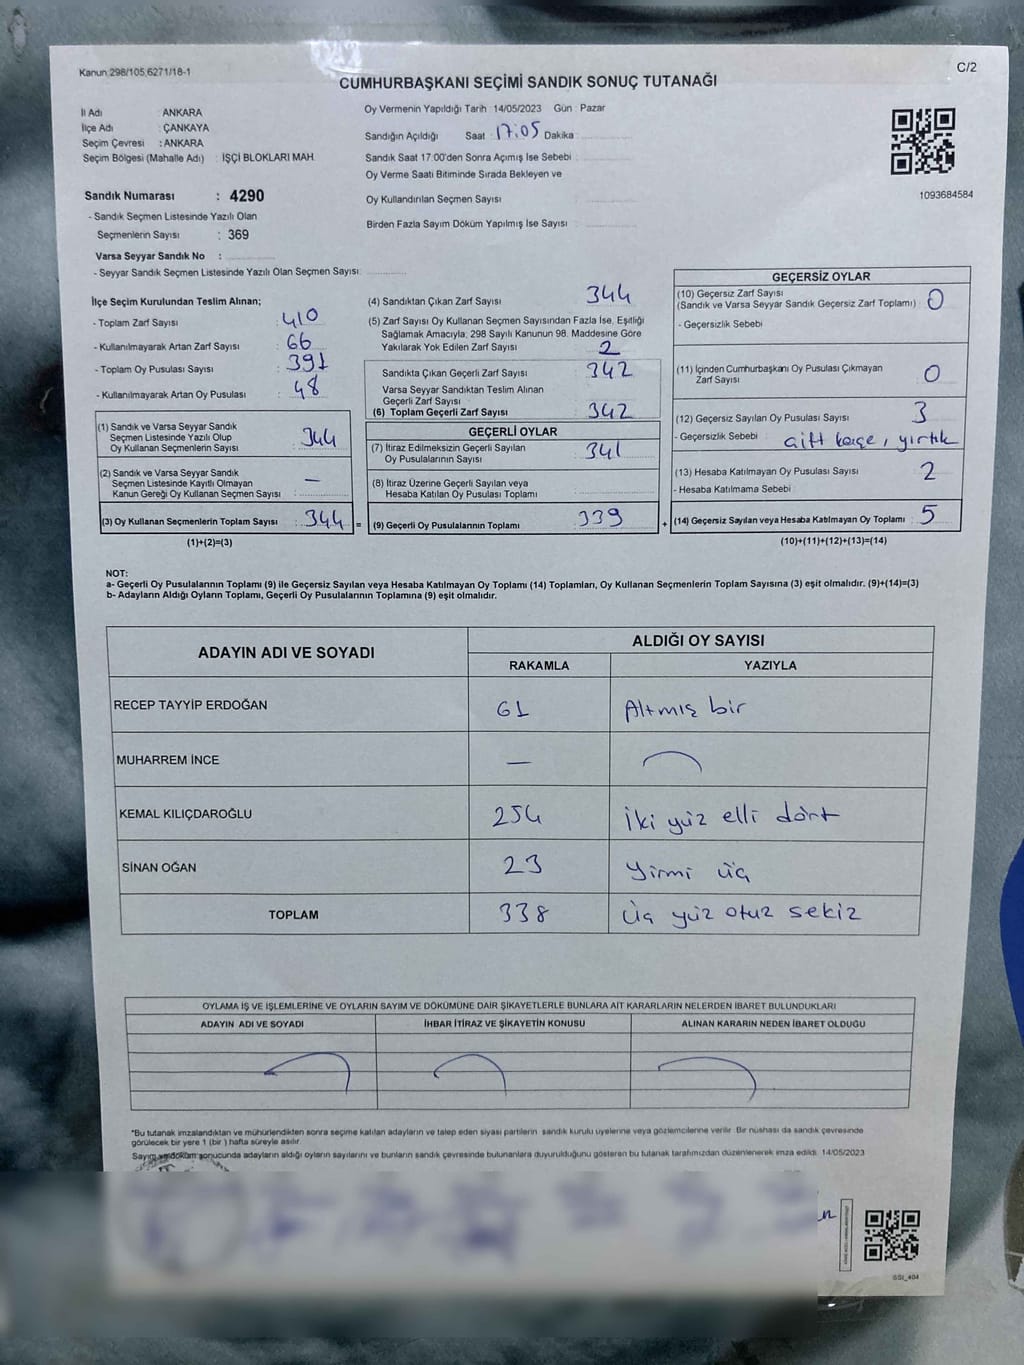 Kanun 298/105,6271/18-1
C/2
CUMHURBAŞKANI SEÇİMİ SANDIK SONUÇ TUTANAĞI
İl Adı : ANKARA
İlçe Adı : ÇANKAYA
Seçim Çevresi : ANKARA
Seçim Bölgesi (Mahalle Adı) : İŞÇİ BLOKLARI MAH.
Sandık Numarası : 4290
- Sandık Seçmen Listesinde Yazılı Olan
Seçmenlerin Sayısı : 369
Varsa Seyyar Sandık No :
- Seyyar Sandık Seçmen Listesinde Yazılı Olan Seçmen Sayısı:
Oy Vermenin Yapıldığı Tarih : 14/05/2023 Gün : Pazar
Sandığın Açıldığı Saat : 17:05 Dakika :
Sandık Saat 17:00'den Sonra Açımış İse Sebebi :
Oy Verme Saati Bitiminde Sırada Bekleyen ve
Oy Kullandırılan Seçmen Sayısı
Birden Fazla Sayım Döküm Yapılmış İse Sayısı :
1093684584
İlçe Seçim Kurulundan Teslim Alınan;
- Toplam Zarf Sayısı : 410
- Kullanılmayarak Artan Zarf Sayısı : 66
- Toplam Oy Pusulası Sayısı : 391
- Kullanılmayarak Artan Oy Pusulası : 48
(1) Sandık ve Varsa Seyyar Sandık
Seçmen Listesinde Yazılı Olup
Oy Kullanan Seçmenlerin Sayısı : 344
(2) Sandık ve Varsa Seyyar Sandık
Seçmen Listesinde Kayıtlı Olmayan
Kanun Gereği Oy Kullanan Seçmen Sayısı : —
(3) Oy Kullanan Seçmenlerin Toplam Sayısı : 344 =
(1)+(2)=(3)
(4) Sandıktan Çıkan Zarf Sayısı 344
(5) Zarf Sayısı Oy Kullanan Seçmen Sayısından Fazla İse, Eşitliği
Sağlamak Amacıyla; 298 Sayılı Kanunun 98. Maddesine Göre
Yakılarak Yok Edilen Zarf Sayısı 2
Sandıkta Çıkan Geçerli Zarf Sayısı : 342
Varsa Seyyar Sandıktan Teslim Alınan
Geçerli Zarf Sayısı
(6) Toplam Geçerli Zarf Sayısı : 342
GEÇERLİ OYLAR
(7) İtiraz Edilmeksizin Geçerli Sayılan
Oy Pusulalarının Sayısı : 341
(8) İtiraz Üzerine Geçerli Sayılan veya
Hesaba Katılan Oy Pusulası Toplamı
(9) Geçerli Oy Pusulalarının Toplamı : 339 +
GEÇERSİZ OYLAR
(10) Geçersiz Zarf Sayısı
(Sandık ve Varsa Seyyar Sandık Geçersiz Zarf Toplamı) : 0
- Geçersizlik Sebebi
(11) İçinden Cumhurbaşkanı Oy Pusulası Çıkmayan
Zarf Sayısı : 0
(12) Geçersiz Sayılan Oy Pusulası Sayısı : 3
- Geçersizlik Sebebi : çift kaşe, yırtık
(13) Hesaba Katılmayan Oy Pusulası Sayısı : 2
- Hesaba Katılmama Sebebi
(14) Geçersiz Sayılan veya Hesaba Katılmayan Oy Toplamı : 5
(10)+(11)+(12)+(13)=(14)
NOT:
a- Geçerli Oy Pusulalarının Toplamı (9) ile Geçersiz Sayılan veya Hesaba Katılmayan Oy Toplamı (14) Toplamları, Oy Kullanan Seçmenlerin Toplam Sayısına (3) eşit olmalıdır. (9)+(14)=(3)
b- Adayların Aldığı Oyların Toplamı, Geçerli Oy Pusulalarının Toplamına (9) eşit olmalıdır.
ADAYIN ADI VE SOYADI
ALDIĞI OY SAYISI
RAKAMLA YAZIYLA
RECEP TAYYİP ERDOĞAN 61 Altmış bir
MUHARREM İNCE —
KEMAL KILIÇDAROĞLU 254 İki yüz elli dört
SİNAN OĞAN 23 Yirmi üç
TOPLAM 338 Üç yüz otuz sekiz
OYLAMA İŞ VE İŞLEMLERİNE VE OYLARIN SAYIM VE DÖKÜMÜNE DAİR ŞİKAYETLERLE BUNLARA AİT KARARLARIN NELERDEN İBARET BULUNDUKLARI
ADAYIN ADI VE SOYADI İHBAR İTİRAZ VE ŞİKAYETİN KONUSU ALINAN KARARIN NEDEN İBARET OLDUĞU
*Bu tutanak imzalandıktan ve mühürlendikten sonra seçime katılan adayların ve talep eden siyasi partilerin sandık kurulu üyelerine veya gözlemcilerine verilir. Bir nüshası da sandık çevresinde
görülecek bir yere 1 (bir) hafta süreyle asılır.
Sayım ve döküm sonucunda adayların aldığı oyların sayılarını ve bunların sandık çevresinde bulunanlara duyurulduğunu gösteren bu tutanak tarafımızdan düzenlenerek imza edildi. 14/05/2023
SSI_404